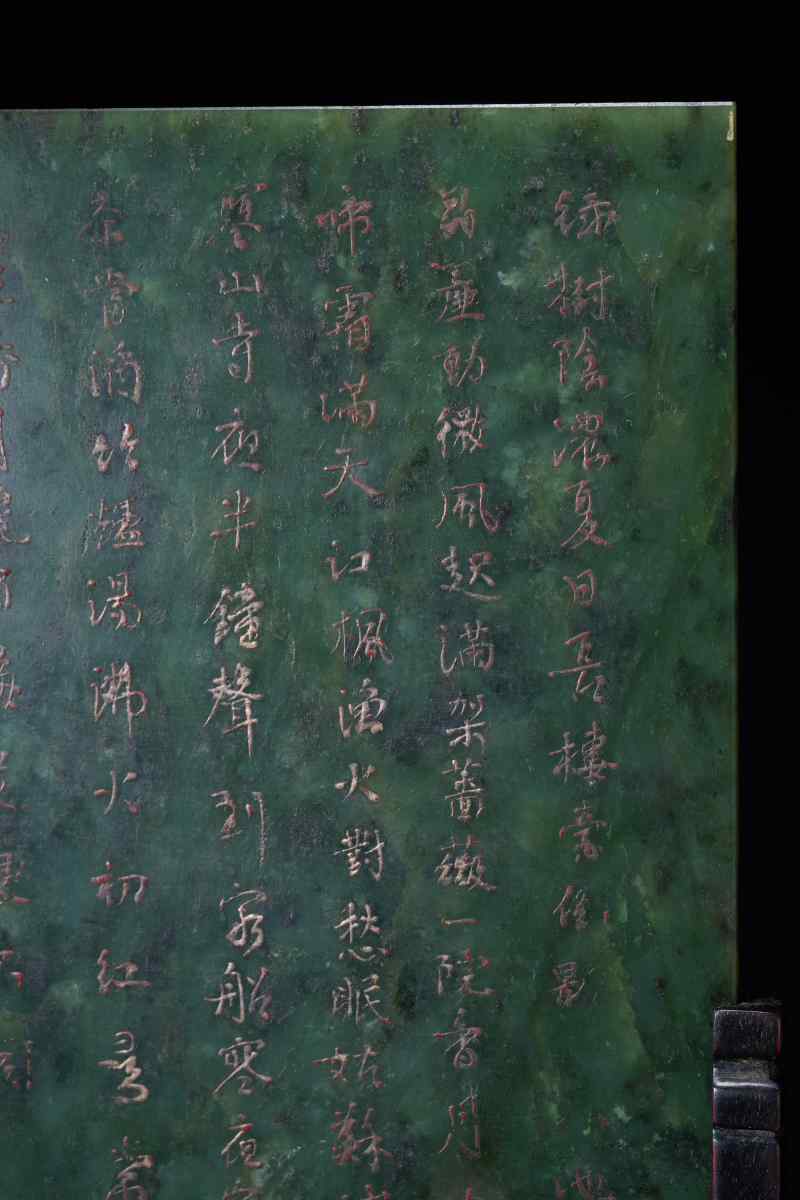 綠樹陰濃夏日長樓臺倒影
晶簾動微風起滿架薔薇一院香月
啼霜滿天江楓漁火對愁眠姑蘇
寒山寺夜半鐘聲到客船寒夜客
茶當酒竹爐湯沸火初紅尋常